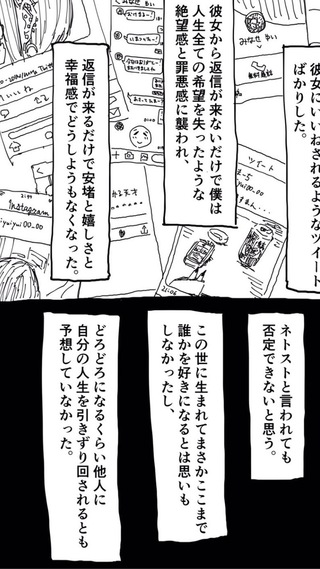 彼女にいいねされるようなツイート
ばかりした。
彼女から返信が来ないだけで僕は
人生全ての希望を失ったような
絶望感と罪悪感に襲われ、
返信が来るだけで安堵と嬉しさと
幸福感でどうしようもなくなった。
ツイート
Instagram
ネトストと言われても
否定できないと思う。
この世に生まれてまさかここまで
誰かを好きになるとは思いも
しなかったし、
どろどろになるくらい他人に
自分の人生を引きずり回されるとも
予想していなかった。